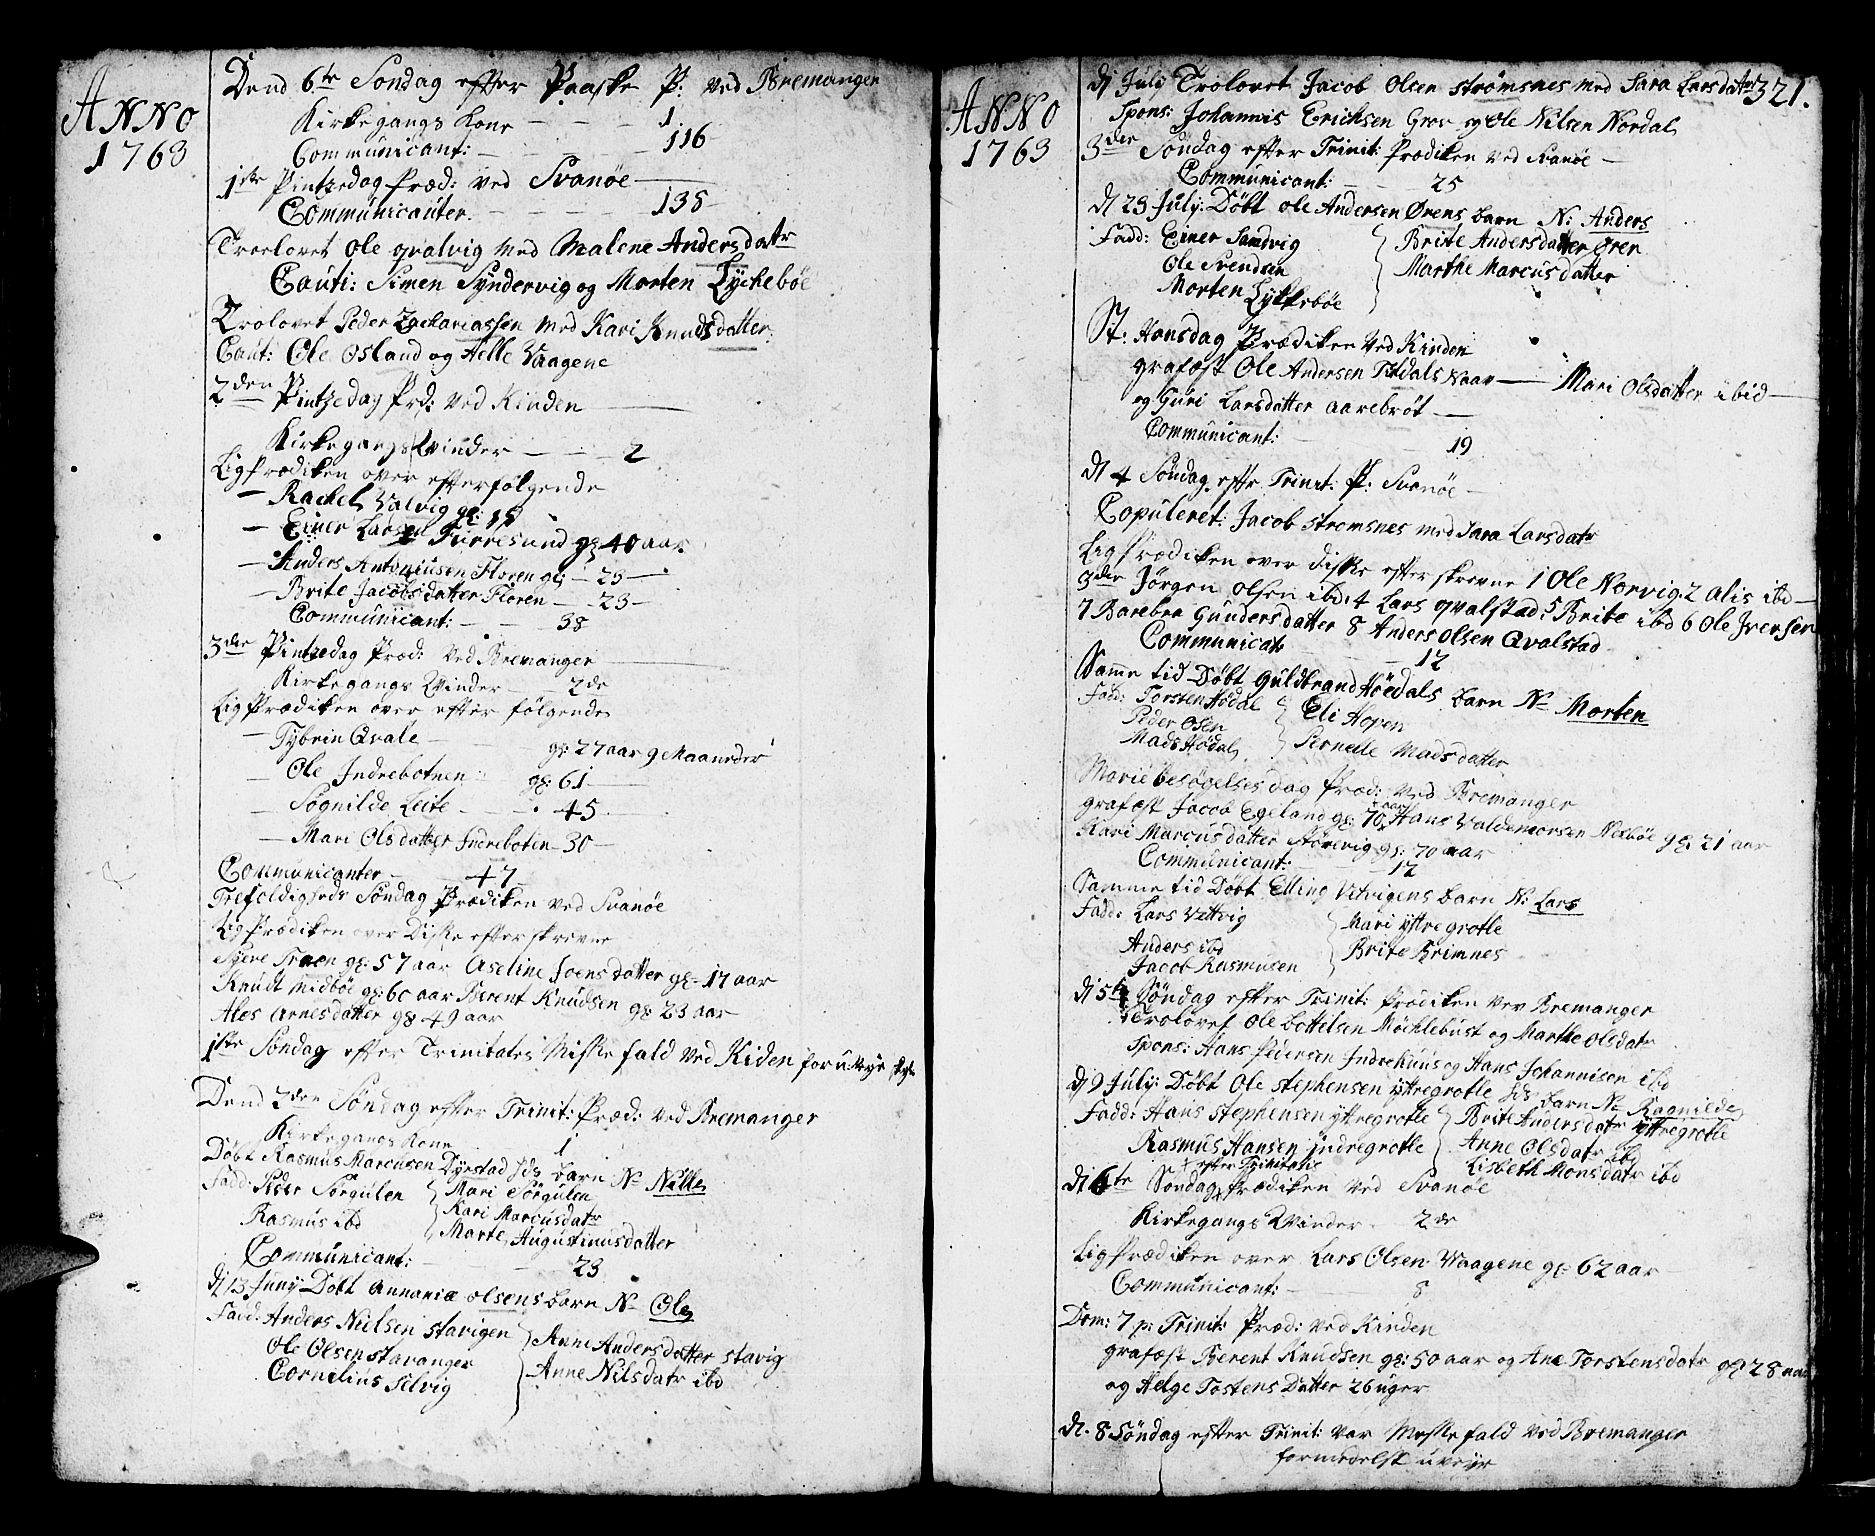 ANNO
1763
Dend 6te Søndag efter Paaske P: ved Bremanger
Kirkegangs Kone - - - 1
Communicant: - - - 116
1ste Pintzedag Præd: ved Svanøe
Communicanter. - - - 135
Troelovet Ole qvalvig med Malene Andersdatr
Cauti: Simen Syndervig og Morten Lyckebøe
Trolovet Peder Zachariassen med Kari Knudsdatter
Caut: Ole Osland og Helle Vaagene
2den Pintzedag Prd: ved Kinden
Kirkegangs Qvinder - - - 2
Lig Prædiken over efterfølgende
- Rachel Valvig gl: 15
- Einer Larsen Furresund gl 40 aar
- Anders Antoniusen Floren gl: - 25 -
- Brite Jacobsdatter Floren - 23 -
Communicant: - - 38
3die Pintzedag Præd: ved Bremanger
Kirkegangs Qvinder - 2de
Lig Prædiken over efter følgende
- Tybrin Qvale - gl: 27 aar 9 Maaneder
- Ole Indrebotnen gl: 61 -
- Søgnilde Leite - 45
- Mari Olsdatter Indreboten - 30 -
Communicanter - 47
Trefoldigheds Søndag Prædiken ved Svanøe
Lig Prædiken over Diske efterskrevne
Syere gl: 57 aar Aseline Joensdatter gl: 17 aar
Knudt Midbøe gl: 60 aar Berent Knudsen gl: 23 aar
Ales Arnesdatter gl 49 aar
1ste Søndag efter Trinitates Miske fald ved Kiden for u:
Dend 2den Søndag efter Trinit: Præd: ved Bremanger
Kirkegangs Kone - 1
Døbt Rasmus Marcusen Dyrstad Sds barn N: Nille
Fadd: Peder Sørgulen } Mari Sørgulen
Rasmus ibd } Kari Marcusdatr
Marte Augustinusdatter
Communicant: - - 23
d 13 Juny Døbt Annaniæ olsens barn N: Ole
Fadd: Anders Nielsen stavigen } Anne Andersdatter stavig
Ole Olsen stavanger } Anne Nilsdatr ibd
Cornelius Selvig
ANNO
1763
321.
dj July Trolovet Jacob Olsen strømsnes med Sara Larsdatr
Spons: Johannis Erichsen Grov og Ole Nilsen Nordal
3der Søndag efter Trinit: Prædiken ved Svanøe -
Communicant: - 25
d 23 July: Døbt Ole Andersen Ørens barn N: Anders
Fadd: Einer Sandvig } Brite Andersdatter Ører
Ole Svendsen } Marthe Marcusdatter
Morten Lykkebøe
St: Hansdag Prædiken ved Kinden
grafæst Ole Andersen Naar - Mari Olsdatter ibid -
og Guri Larsdatter Aarebrøt -
Communicant: - 19
d 4 Søndag efter Trinit: P: Svanøe -
Copuleret: Jacob stromsnes med Sara Larsdatr
Lig Prædiken over diske efterskrevne 1 Ole Norvig 2 Alis ibd -
3der Jørgen Olsen ibd: 4 Lars qvalstad 5 Brite ibd 6 Ole Iversen
7 Barebra Gundersdatter 8 Anders Olsen Qvalstad
Communicat - 12
Samme tid Døbt Guldbrand Høedals barn N: Morten
Fad: Torsten Hødal } Eli Hopen
Peder Osen
Mads Hødal } Pernelle Madsdatter
Marie besøgelses dag Præd: ved Bremanger
grafæst Jacob Egeland gl: 70 aar Hans Valdemorsen Nexbøe gl: 21 aar
Kari Marcusdatter Størevig gl: 70 aar
Communicant: - 12
Samme tid Døbt Elling Vetvigens barn N: Lars
Fadd: Lars Vettvig } Mari yttregrotle
Anders ibd } Brite Brimnes
Jacob Rasmusen
d 5te Søndag efter Trinit: Prædiken vev Bremanger
Trolovet Ole Bottelsen Møchlebust og Marthe Olsdatr
Spons: Hans Pedersen Indrehuus og Hans Johannisen ibd
d 9 July: Døbt Ole Stephensen yttregrotle Sds barn N: Ragnilde
Fadd: Hans Stephensen yttregrotle } Brite Andersdatr yttregrotle
Rasmus Hansen Indregrotle } Anne Olsdatr ibd
Lisbeth Monsdatr ibd
d 6te Søndag efter Trinitatis Prædiken ved Svanøe
Kirkegangs Qvinder - 2de
Lig Prædiken over Lars Olsen Vaagene gl: 62 aar
Communicant: - 8
Dom: 7 p: Trinit: Præd: ved Kinden
grafæst Berent Knudsen gl: 50 aar og Ane Torstensdatr gl 28 aar
og Helge Tostens Datter 26 uger
d. 8 Søndag efter Trinit: var Meske fald ved Bremanger
formedelst uveyr